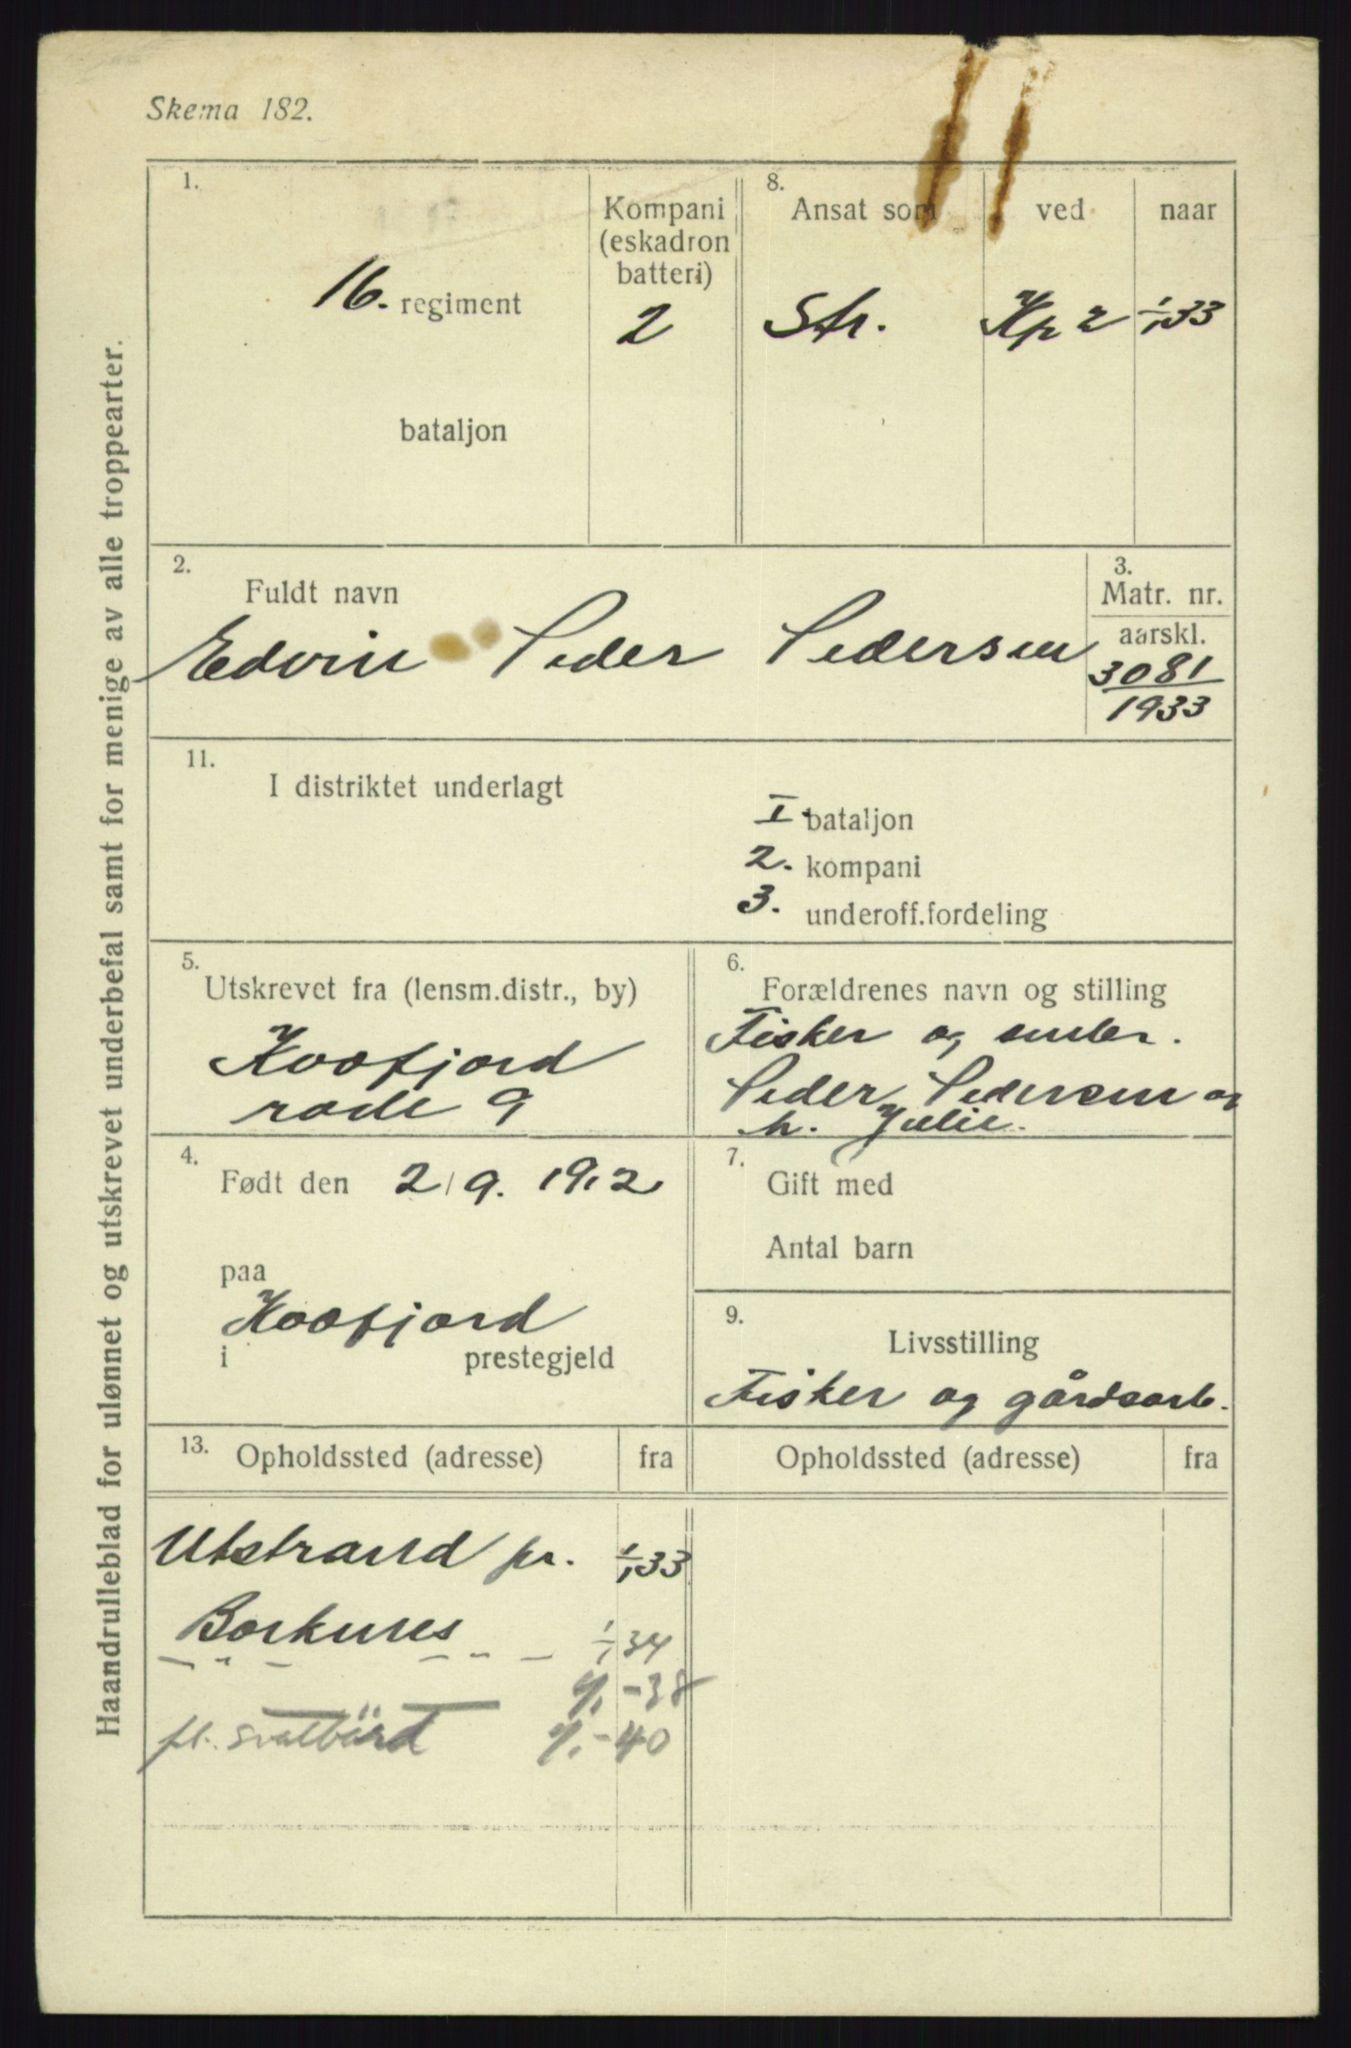 Skema 182.
Haandrulleblad for ulønnet og utskrevet underbefal samt for menige av alle troppearter.
1.
16. regiment
bataljon
Kompani
(eskadron
batteri)
2
8.
Ansat som ved naar
Str. Kp 2 1/1 33
2.
Fuldt navn
Edvin Peder Pedersen
3.
Matr. nr.
aarskl.
3081
1933
11.
I distriktet underlagt
I. bataljon
2. kompani
3. underoff.fordeling
5.
Utskrevet fra (lensm.distr., by)
Kvæfjord
rode 9
6.
Forældrenes navn og stilling
Fisker og
Peder Pedersen og
h. Julie.
4.
Født den 2/9. 1912
paa
Kvæfjord
i prestegjeld
7.
Gift med
Antal barn
9.
Livsstilling
Fisker og gårdsarb.
13.
Opholdssted (adresse) fra Opholdssted (adresse) fra
Utstrand pr. 1/1 33
Borkenes 1/1 34
— " — — " — 1/1 - 38
fl. Svalbard 1/1 - 40